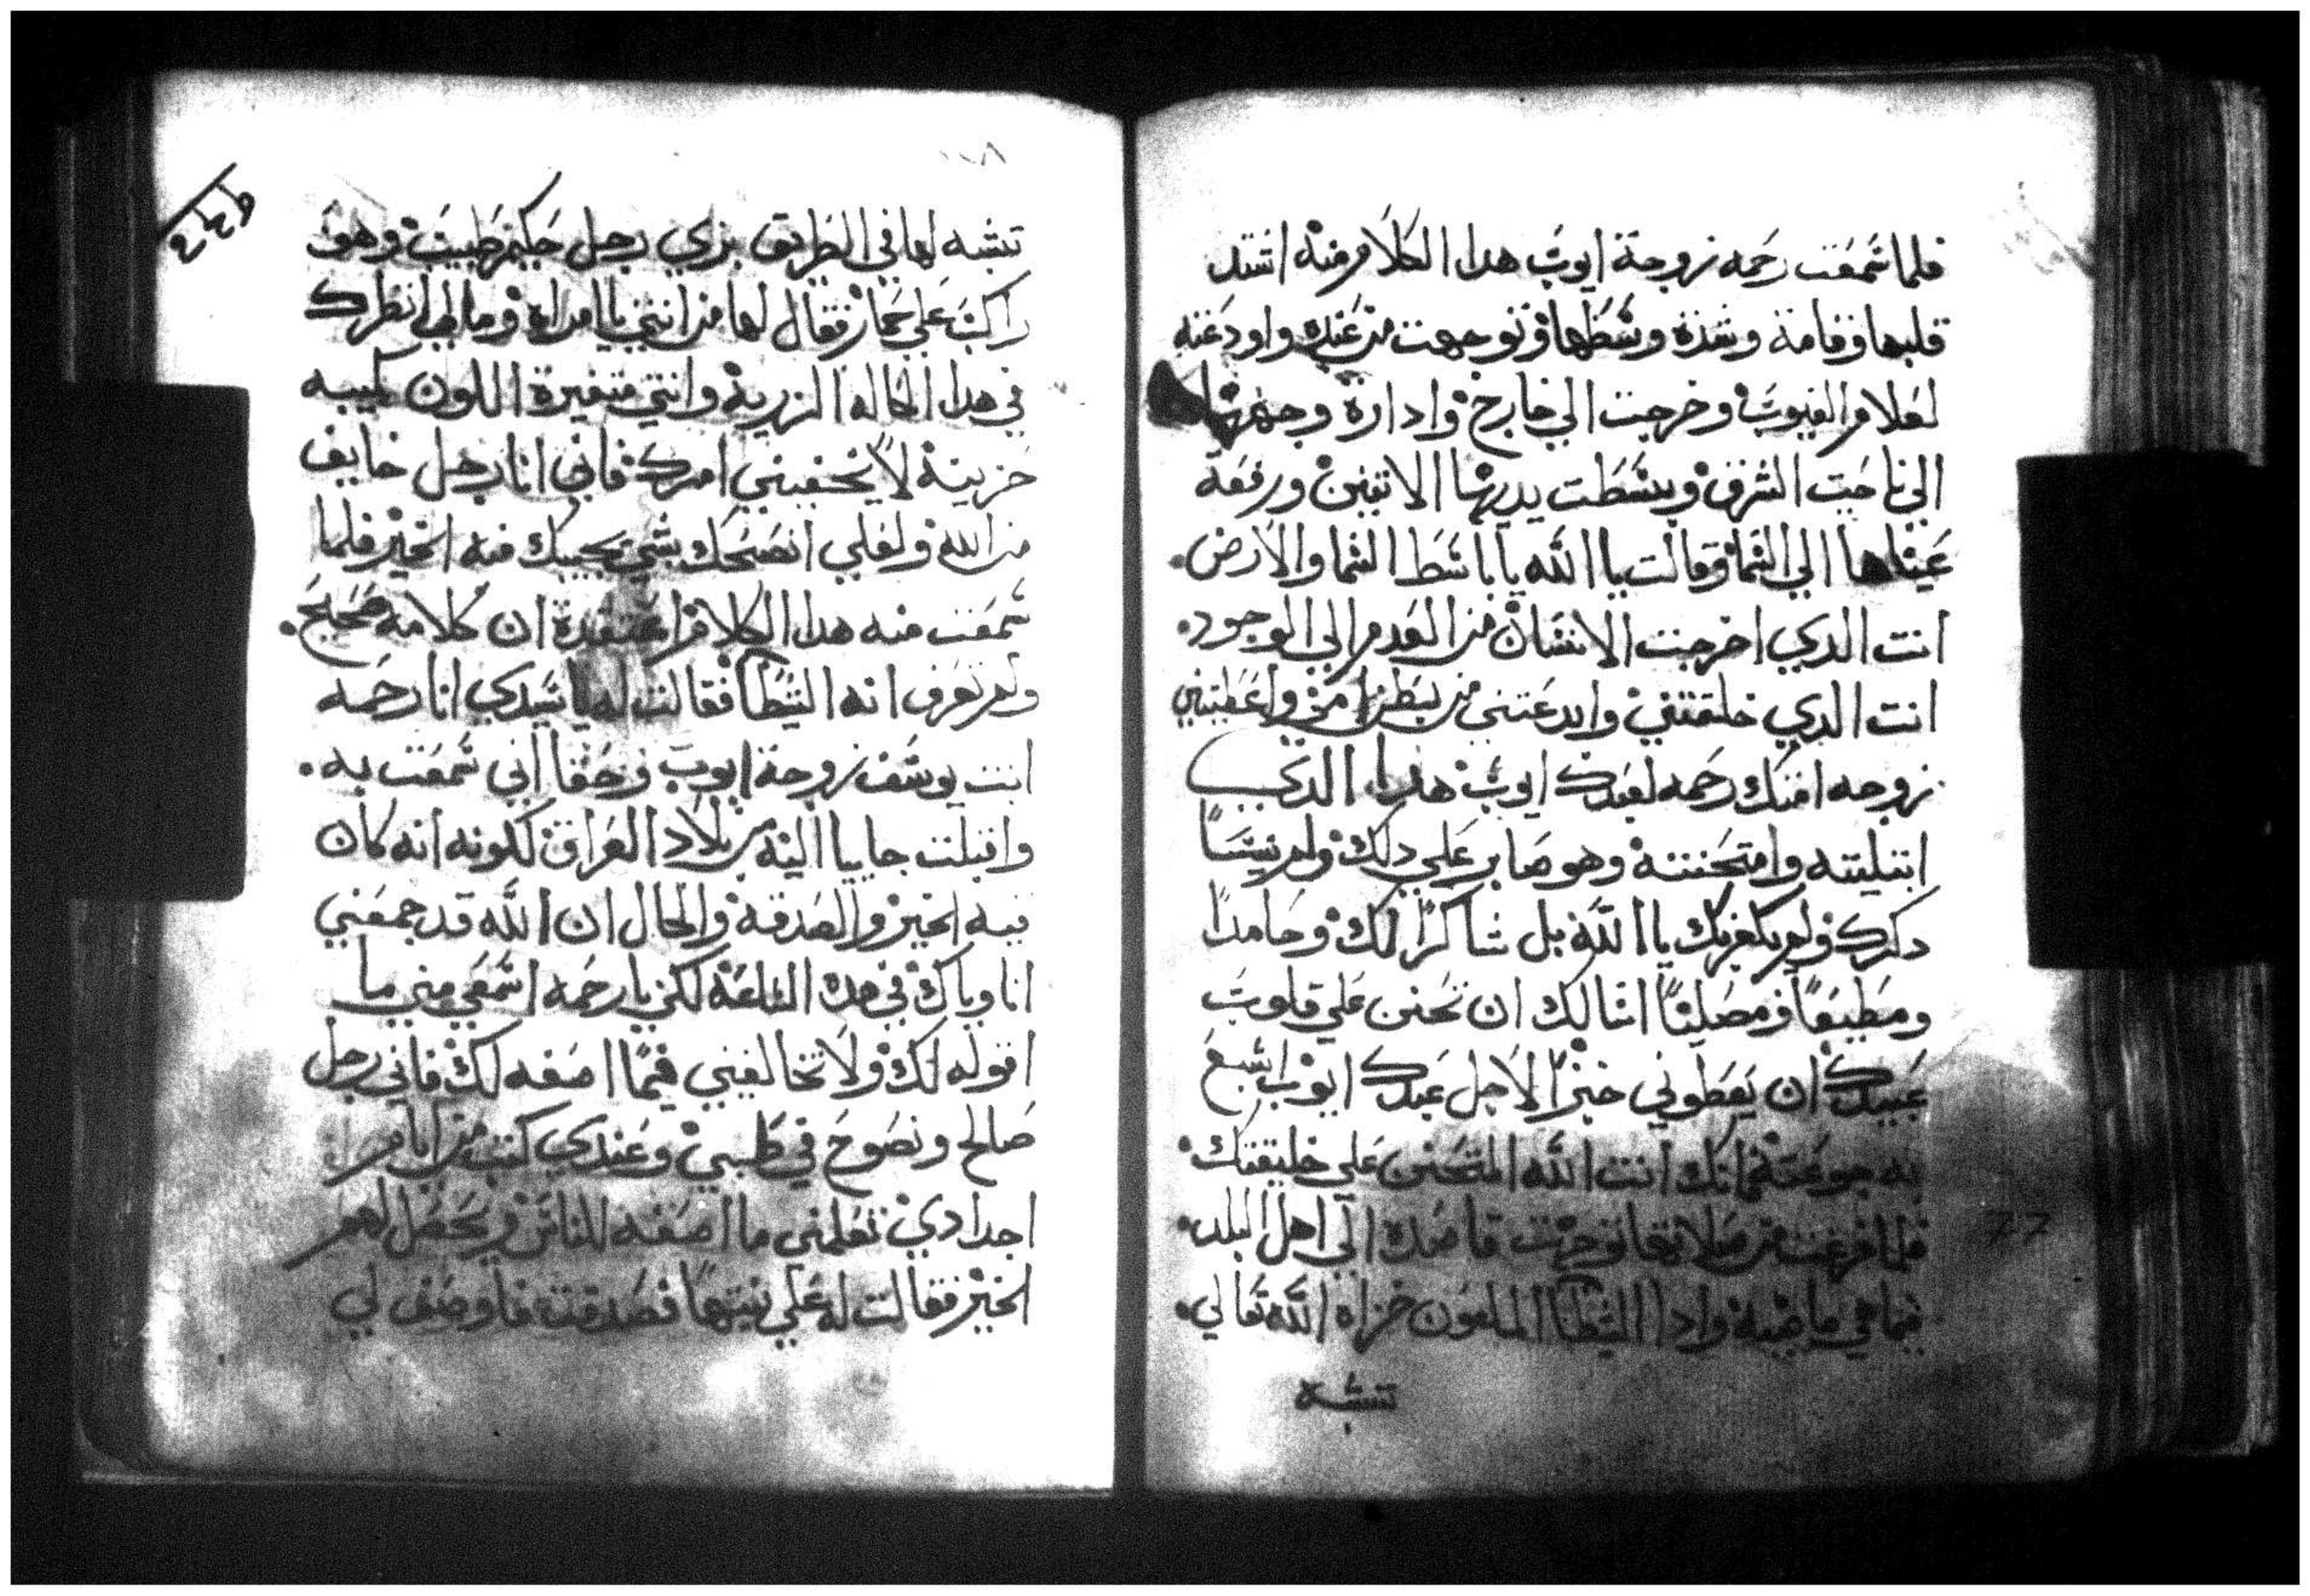 فلما سمعت رحمه زوجة ايوب هدا الكلام منه اشتد
قلبها وقامة وشدة وسطها وتوجهت من عنده واودعته
لعلام الغيوب وخرجت الي خارج وادارة وجهها
الي ناحيت الشرق وبسطت يديها الاتنين ورفعه
عيناها الي السما وقالت يا الله يا باسط السما والارض.
انت الدي اخرجت الانسان من العدم الي الوجود.
انت الدي خلقتني وابدعتني من بطن امي واعطيتني
زوجه امتك رحمه لعبدك ايوب هدا الدي
ابتليته وامتحنته وهو صابر علي دلك ولم ينسا
دكرك ولم يكفر بك يا الله بل شاكرا لك وحامدا
ومطيعا ومصليا اسالك ان تحنن علي قلوب
عبيدك ان يعطوني خبزا لاجل عبدك ايوب اشبع
به جوعته لانك انت الله المتحنن علي خليقتك
فلما فرغت من صلاتها توجهت قاصدة الي اهل البلد.
فيما هي ماضية وادا الشيطان الملعون خزاه الله تعالي.
تشبه
٢٤٥
تشبه لها في الطريق بزي رجل حكيم طبيب وهو
راكب علي حمار فقال لها من انتي يا امراة ومالي انظرك
في هدا الحاله الزرية وانتي متغيرة اللون كييبه
حزينة لا تخفيني امرك فاني انا رجل خايف
من الله ولعلي انصحك بشي يجيبك منه الخير فلما
سمعت منه هدا الكلام اعتقدة ان كلامه صحيح.
ولم تعرف انه الشيطان فقالت له يا سيدي انا رحمه
ابنت يوسف زوجة ايوب وحقا اني سمعت به.
واقبلت جاييا اليه من بلاد العراق لكونه انه كان
فيه الخير والصدقة والحال ان الله قد جمعني
انا وياك في هده الساعة لكن يا رحمه اسمعي مني ما
اقوله لك ولا تخالفيني فيما اصفه لك فاني رجل
صالح ونصوح في طبي وعندي كتب من ايام
اجدادي تعلمني ما اصفه للناس ويحصل لهم
الخير فقالت له علي نيتها فصدقت فاوصف لي